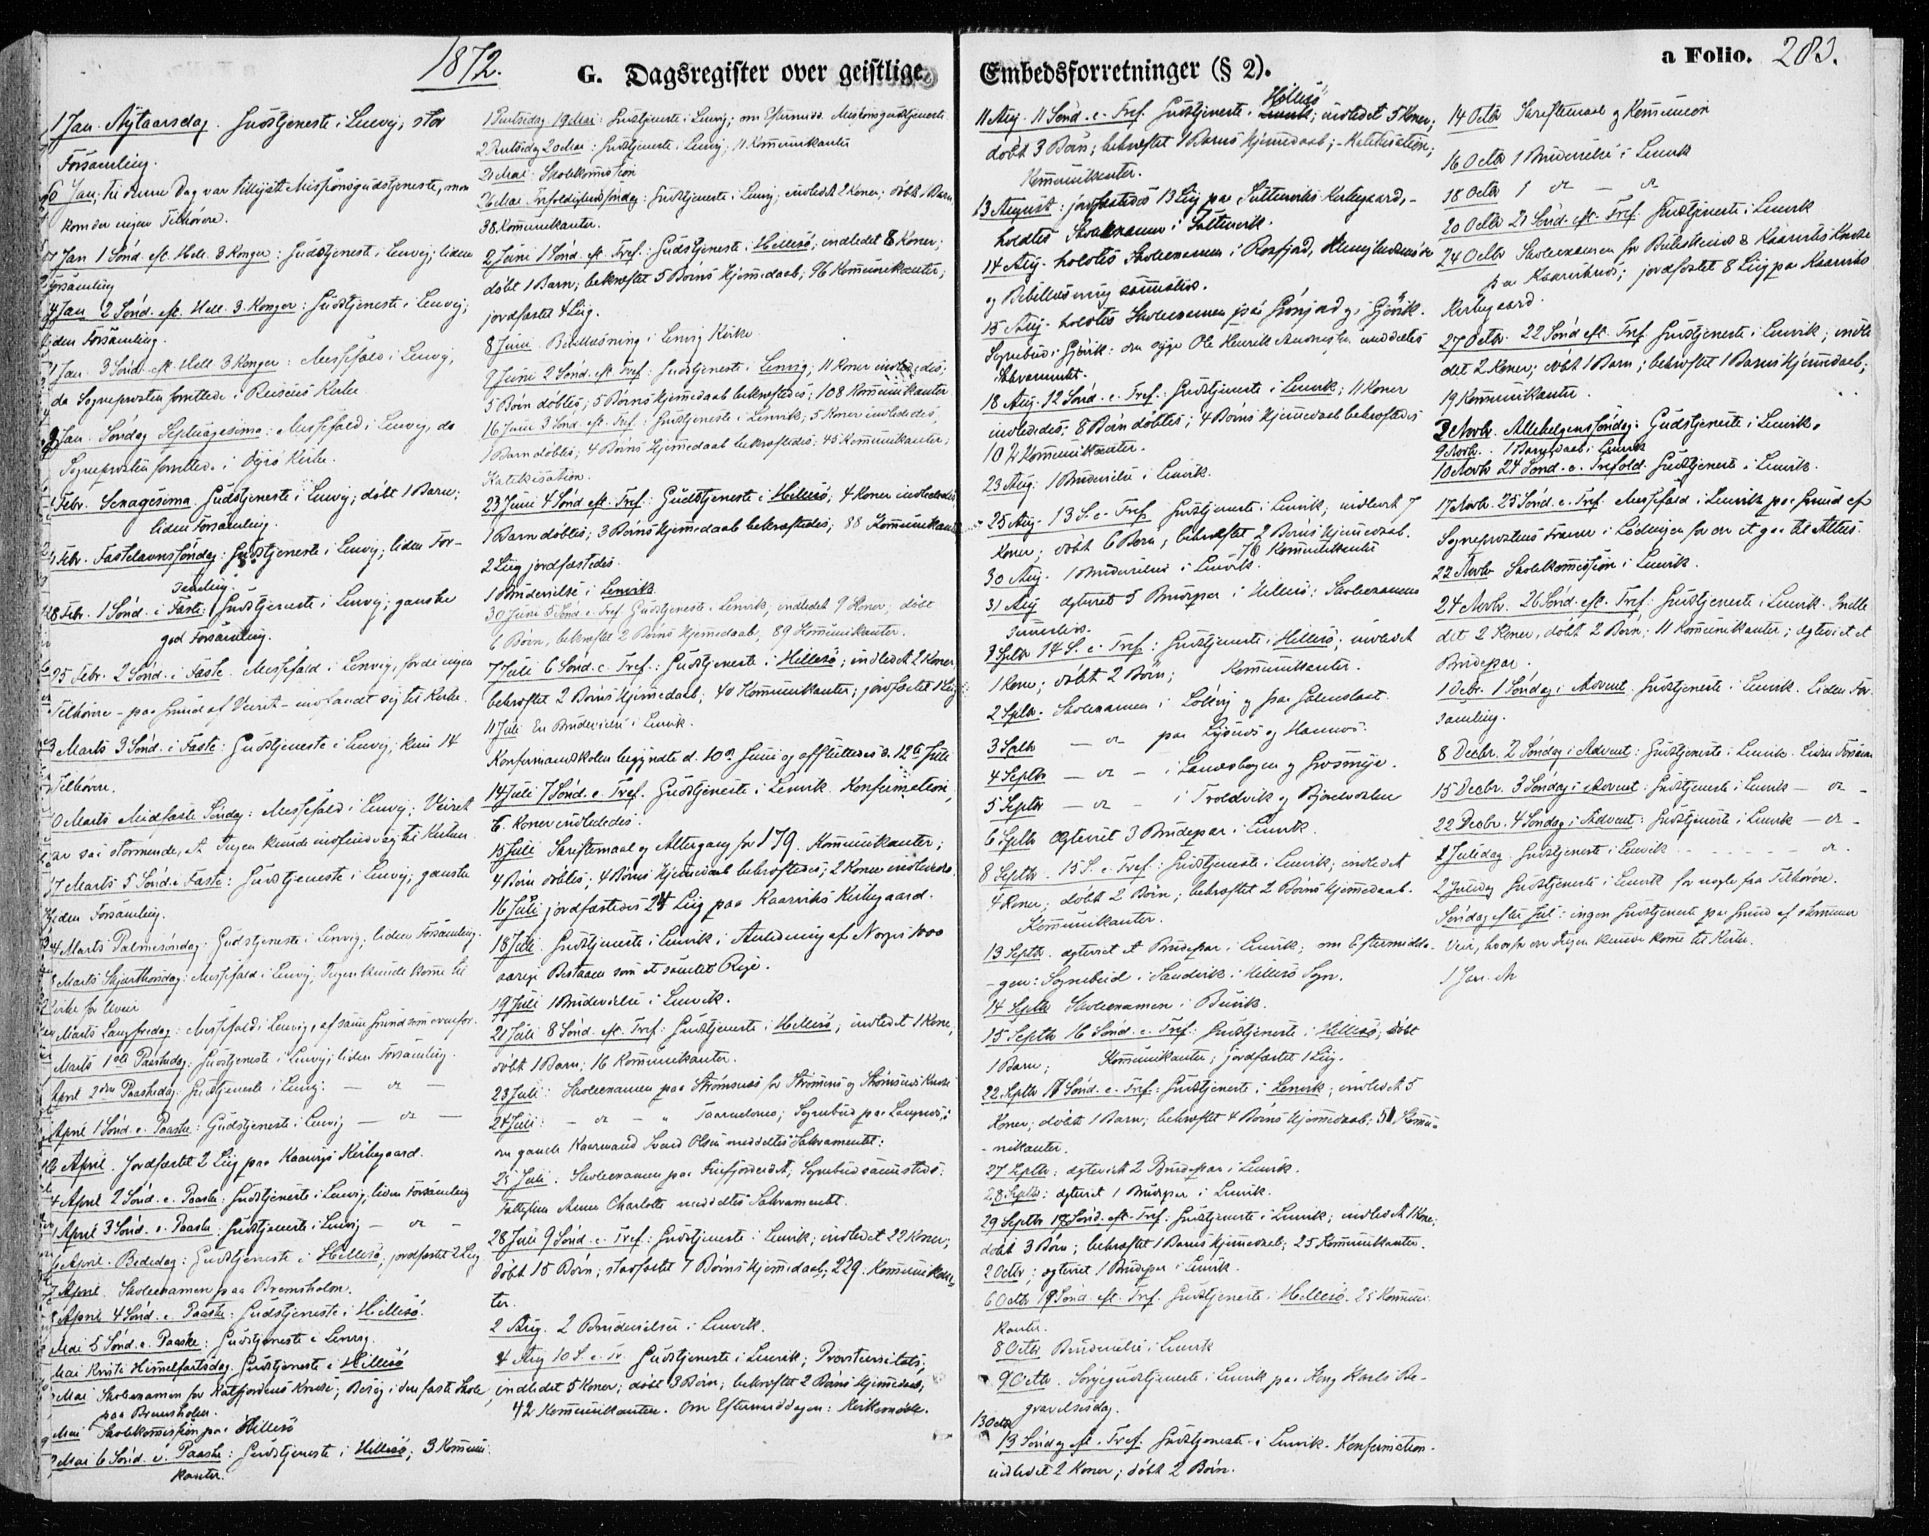 1872.
G. Dagsregister over geistlige
Embedsforretninger (§ 2).
a Folio. 283.
1 Jan. Nytaarsdag. Gudstjeneste i Lenvig, stor
Forsamling.
6 Jan. Til denne Dag var tillyst Missionsgudstjeneste, men
kom der ingen Tilhørere.
7 Jan 1 Sönd. eft. Hell. 3 Konger: Gudstjenest i Lenvig; liden
Forsamling
14 Jan 2 Sönd. eft. Hell. 3 Konger: Gudstjeneste i Lenvig;
liden Forsamling.
21 Jan. 3 Sönd. eft. Hell. 3 Konger: Messefald i Lenvig,
da Sogneprosten forrettede i Kirke
28 Jan. Söndag Septuagesima: Messefald i Lenvig, da
Sogneprosten forrettede i Kirke.
4 Febr. Sexagesima. Gudstjeneste i Lenvig; döbt 1 Barn;
liden Forsamling.
11 Febr. Fastelavnssöndag: Gudstjeneste i Lenvig; liden For-
samling.
18 Febr. 1 Sönd. i Faste: Gudstjeneste i Lenvig; ganske
god Forsamling.
25 Febr. 2 Sönd. i Faste. Messefald i Lenvig, fordi ingen
Tilhörere - paa Grund af Veiret - indfandt sig til Kirke.
3 Marts 3 Sönd. i Faste: Gudstjeneste i Lenvig; kun 14
Tilhörere.
10 Marts Midfaste Söndag: Messefald i Lenvig; Veiret
var saa stormende, at Ingen kunde indfinde sig til Kirken.
17 Marts 5 Sönd. i Faste: Gudstjeneste i Lenvig; ganske
liden Forsamling.
24 Marts Palmesöndag: Gudstjeneste i Lenvig, liden Forsamling.
28 Marts Skjærthorsdag: Messefald i Lenvig, Ingen kunde komme til
Kirke for Uveir
29 Marts Langfredag: Messefald i Lenvig, af samme Grund som ovenfor.
31 Marts 1ste Paaskedag: Gudstjeneste i Lenvig; liden Forsamling.
1 April 2den Paaskedag: Gudstjeneste i Lenvig: — do —
7 April 1 Sönd. e. Paaske: Gudstjeneste i Lenvig — do —
12 April. Jordfæstet 2 Liig paa Kaarvigs Kirkegaard.
14 April 2 Sönd. e. Paaske: Gudstjeneste i Lenvig, liden Forsamling
21 April 3 Sönd. e. Paaske: Gudstjeneste i Lenvig — do —
26 April. Bededag: Gudstjeneste i Hillesö, jordfæstet 2 Liig
27 April. Skoleexamen paa Bremsholm.
28 April 4 Sönd. e. Paaske: Gudstjeneste i Hillesö.
5 Mai 5 Sönd. e. Paaske: Gudstjeneste i Lenvig.
9 Mai Kristi Himmelfartsdag. Gudstjeneste i Hillesö
Mai Skoleexamen for Katfjordens Kreds; Besög i den faste Skole
paa Bremsholm.
Mai Skolekommission paa Hillesö
12 Mai 6 Sönd. e. Paaske: Gudstjeneste i Hillesö; 3 Kommuni-
kanter.
1 Pintsedag 19 Mai: Gudstjeneste i Lenvig; om Eftermidd. Missionsgudstjeneste
2 Pintsedag 20 Mai: Gudstjeneste i Lenvig; 11 Kommunikanter
21 Mai. Skolekommission
26 Mai. Trefoldighedssöndag: Gudstjeneste i Lenvig; indledet 2 Koner; döbt 1 Barn
38 Kommunikanter.
2 Juni 1 Sönd. eft. Tref.: Gudstjeneste i Hillesö, indledet 8 Koner;
döbt 1 Barn; bekræftet 5 Börns Hjemmedaab; 96 Kommunikanter;
jordfæstet 4 Liig.
8 Juni. Bibellæsning i Lenvig Kirke
9 Juni 2 Sönd. eft. Tref: Gudstjeneste i Lenvig; 11 Koner indlededes;
5 Börn döbtes; 5 Börns Hjemmedaab bekræftedes; 108 Kommunikanter
16 Juni 3 Sönd. eft. Tref.: Gudstjeneste i Lenvik; 5 Koner indlededes,
1 Barn döbtes; 4 Börns Hjemmedaab bekræftedes; 45 Kommunikanter;
Katekisation.
23 Juni 4 Sönd eft. Tref: Gudstjeneste i Hillesö; 4 Koner indlededes
1 Barn döbtes; 3 Börns Hjemmedaab bekræftedes; 88 Kommunikanter
2 Liig jordfæstedes.
1 Brudevielse i Lenvik.
30 Juni 5 Sönd e. Tref. Gudstjeneste i Lenvik, indledet 9 Koner; döbt
6 Börn, bekræftet 2 Börns Hjemmedaab, 89 Kommunikanter.
7 Juli 6 Sönd. e. Tref.: Gudstjeneste i Hillesö; indledet 2 Koner,
bekræftet 2 Börns Hjemmedaab; 40 Kommunikanter; jordfæstet 1 Liig
11 Juli En Brudevielse i Lenvik.
Konfirmandskolen begyndte d. 10de Juni og afsluttedes d. 12te Juli
14 Juli 7 Sönd. e. Tref. Gudstjeneste i Lenvik. Konfirmation,
6 Koner indlededes.
15 Juli Skriftemaal og Altergang for 179. Kommunikanter;
4 Börn döbtes; 4 Börns Hjemmedaab bekræftedes; 2 Koner indlededes.
16 Juli jordfæstedes 24 Liig paa Kaarviks Kirkegaard.
18 Juli. Gudstjeneste i Lenvik i Anledning af Norges 1000
aarige Bestaaen som et samlet Rige.
19 Juli 1 Brudevielse i Lenvik.
21 Juli 8 Sönd. eft. Tref.: Gudstjeneste i Hillesö, indledet 1 Kone,
döbt 1 Barn; 16 Kommunikanter.
23 Juli: Skoleexamen paa Strömsnæs for Strömens og Strömsnæs Kredse
24 Juli: — do — " ; Sognebud paa Langnæs;
den gamle Kaarmand Svend Olsen meddeltes Sakramentet:
25 Juli. Skoleexamen paa ; Sognebud sammesteds:
Anne Charlotte meddeltes Sakramentet.
28 Juli 9 Sönd. e. Tref: Gudstjeneste i Lenvik; indledet 22 Koner,
döbt 15 Börn; stadfæstet 7 Börns Hjemmedaab; 229. Kommunikan-
ter.
2 Aug. 2 Brudevielser i Lenvik.
4 Aug 10 S. e. Tr. Gudstjeneste i Lenvik; Provstevisitats;
indledet 5 Koner; döbt 3 Börn; bekræftet 2 Börns Hjemmedaab;
42 Kommunikanter. Om Eftermiddagen:
11 Aug. 11 Sönd. e. Tref. Gudstjeneste i Hillesö; indledet 5 Koner;
döbt 3 Börn; bekræftet 1 Barns Hjemmedaab; - Katekisation;
Kommunikanter.
13 August: jordfæstedes 13 Liig paa Kirkegaard, -
holdtes Skoleexamen i
14 Aug. holdtes Skoleexamen i Rossfjord,
og Bibellæsning sammesteds.
15 Aug. holdtes Skoleexamen paa Grönjord og i Gjövik.
Sognebud i Gjövik: den syge Ole Henrik meddeltes
Sakramentet.
18 Aug. 12 Sönd. e. Tref.: Gudstjeneste i Lenvik; 11 Koner
indlededes; 8 Börn döbtes; 4 Börns Hjemmedaab bekræftedes
102 Kommunikanter.
23 Aug. 1 Brudevielse i Lenvik.
25 Aug. 13 S. e. Tref. Gudstjeneste i Lenvik, indledet 7
Koner; döbt 6 Börn; bekræftet 2 Börns Hjemmedaab.
76 Kommunikanter
30 Aug. 1 Brudevielse i Lenvik.
31 Aug ægteviet 5 Brudepar i Hillesö: Skoleexamen
sammesteds.
1 Septbr 14 S. e. Tref: Gudstjeneste i Hillesö; indledet
1 Kone; döbt 2 Börn; Kommunikanter.
2 Septbr. Skoleexamen i Lökvig og paa
3 Septbr — do — paa Lysnæs og
4 Septbr — do — i
5 Septbr — do — i Troldvik og
6 Septbr Ægteviet 3 Brudepar i Lenvik.
8 Septbr. 15 S. e. Tref.: Gudstjeneste i Lenvik; indledet
4 Koner; döbt 2 Börn; bekræftet 2 Börns Hjemmedaab.
Kommunikanter.
13 Septbr. ægteviet et Brudepar i Lenvik; om Eftermidda-
-gen: Sognebud i Sandvik i Hillesö Sogn.
14 Septbr Skoleexamen i Buvik.
15 Septbr 16 Sönd. e. Tref.: Gudstjeneste i Hillesö; döbt
1 Barn; Kommunikanter; jordfæstet 1 Liig.
22 Septbr 17 Sönd. e. Tref.: Gudstjeneste i Lenvik; indledet 5
Koner; döbt 1 Barn; bekræftet 4 Börns Hjemmedaab; 51 Kommu-
-nikanter.
27 Septbr: ægteviet 2 Brudepar i Lenvik.
28 Septbr: ægteviet 1 Brudepar i Lenvik.
29 Septbr 18 Sönd. eft. Tref: Gudstjeneste i Lenvik; indledet 1 Kone;
döbt 3 Börn; bekræftet 1 Barns Hjemmedaab; 25 Kommunikanter.
2 Octbr; ægteviet 1 Brudepar i Lenvik.
6 Octbr 19 Sönd. eft. Tref. Gudstjeneste i Hillesö. 25 Kommuni-
kanter.
8 Octbr Brudevielse i Lenvik
9 Octbr. Sörgegudstjeneste i Lenvik paa Kong Karls Be-
gravelsesdag.
13 Octbr
Söndag eft. Tref: Gudstjeneste i Lenvik. Konfirmation.
indledet 2 Koner; döbt 2 Börn.
14 Octbr Skriftemaal og Kommunion
16 Octbr 1 Brudevielse i Lenvik
18 Octbr 1 do — do
20 Octbr 21 Sönd. eft. Tref. Gudstjeneste i Lenvik
24 Octbr Skoleexamen for & Kaarviks Kredse
paa Kaarviknes; jordfæstet 8 Liig paa Kaarviks
Kirkegaard.
27 Octbr. 22 Sönd eft. Tref Gudstjeneste i Lenvik; indle-
det 2 Koner; döbt 1 Barn; bekræftet 1 Barns Hjemmedaab;
19 Kommunikanter.
3 Novbr. Allehelgenssöndag: Gudstjeneste i Lenvik.
9 Novb. 1 i Lenvik
10 Novbr 24 Sönd. e. Trefold. Gudstjeneste i Lenvik.
17 Novbr. 25 Sönd. e. Tref. Messefald i Lenvik paa Grund af
Sogneprostens Fravær i Lödingen for der at gaa til Alters.
22 Novbr Skolekommission i Lenvik.
24 Novbr. 26 Sönd. eft. Tref: Gudstjeneste i Lenvik. Indle-
det 2 Koner, döbt 2 Börn; 11 Kommunikanter; ægteviet et
Brudepar.
1 Decbr. 1 Söndag i Advent. Gudstjeneste i Lenvik. Liden For-
samling.
8 Decbr. 2 Söndag i Advent: Gudstjeneste i Lenvik. Liden Forsam
15 Decbr. 3 Söndag i Advent: Gudstjeneste i Lenvik — do -
22 Decbr. 4 Söndag i Advent: Gudstjeneste i Lenvik — do -
1 Juledag. Gudstjeneste i Lenvik - - - - do.
2 Juledag Gudstjeneste i Lenvik for nogle faa Tilhörere.
Söndag efter Jul: ingen Gudstjeneste paa Grund af stormende
Veir, hvorfor der Ingen kunde komme til Kirke.
1 Jan.